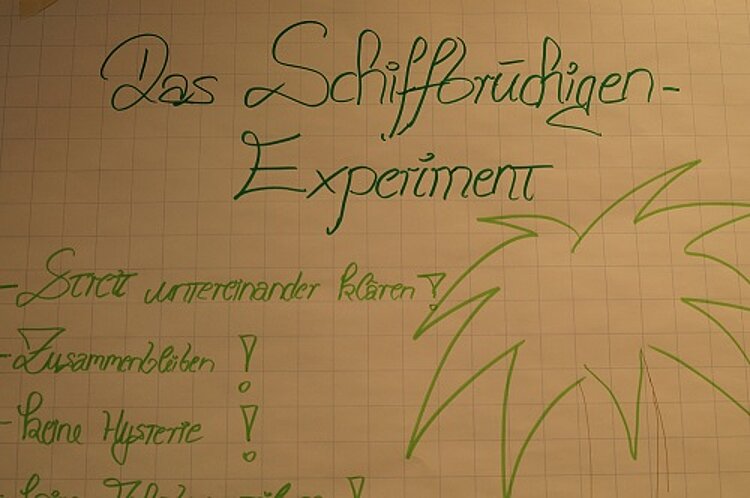 Das Schiffbrüchigen-
Experiment
- Streit untereinander klären!
- Zusammenbleiben!
- keine Hysterie!